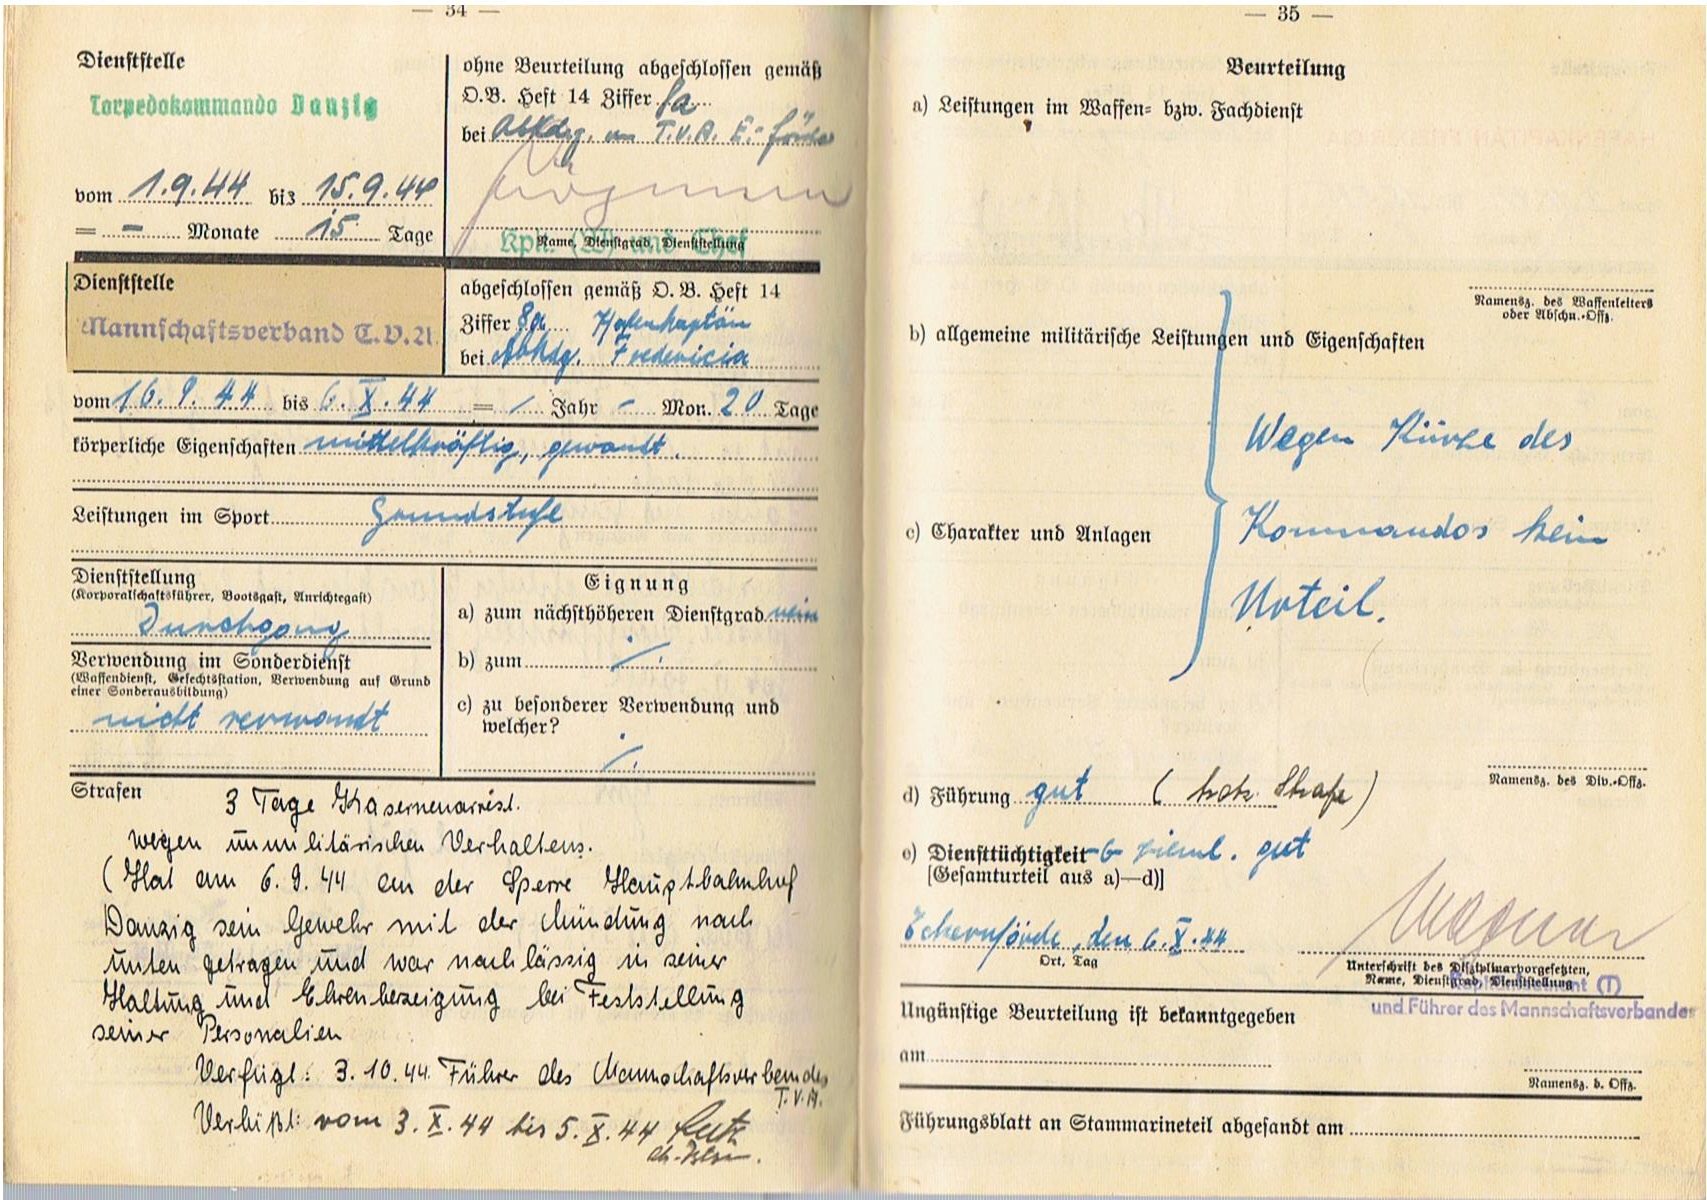 — 34 —
Dienststelle
Torpedokommando Danzig
vom 1.9.44 bis 15.9.44
= – Monate 15 Tage
ohne Beurteilung abgeschlossen gemäß
O.B. Heft 14 Ziffer 8a
bei Abkdg. T.V.A. E.-förde
Name, Dienstgrad, Dienststellung
Kpt. (W) und Chef
Dienststelle
Mannschaftsverband T.V.A.
abgeschlossen gemäß O.B. Heft 14
Ziffer 8a Hafenkaptän
bei Abkdg. Fredericia
vom 16.9.44 bis 6.X.44 = / Jahr – Mon. 20 Tage
körperliche Eigenschaften mittelkräftig, gewandt.
Leistungen im Sport Grundstufe
Dienststellung
(Korporalschaftsführer, Bootsgast, Anrichtegast)
Durchgang
Verwendung im Sonderdienst
(Waffendienst, Gefechtsstation, Verwendung auf Grund
einer Sonderausbildung)
nicht verwandt
Eignung
a) zum nächsthöheren Dienstgrad nein
b) zum ./.
c) zu besonderer Verwendung und
welcher?
./.
Strafen
3 Tage Kasernenarrest.
wegen unmilitärischen Verhaltens.
(Hat am 6.9.44 an der Sperre Hauptbahnhof
Danzig sein Gewehr mit der Mündung nach
unten getragen und war nachlässig in seiner
Haltung und Ehrenbezeigung bei Feststellung
seiner Personalien
Verfügt: 3.10.44 Führer des Mannschaftsverbandes
T.V.A.
Verbüßt: vom 3.X.44 bis 5.X.44
— 35 —
Beurteilung
a) Leistungen im Waffen- bzw. Fachdienst
Namensz. des Waffenleiters
oder Abschn.-Offz.
b) allgemeine militärische Leistungen und Eigenschaften
Wegen Kürze des
c) Charakter und Anlagen
Kommandos kein
Urteil.
Namensz. des Div.-Offz.
d) Führung gut ( trotz Strafe)
e) Diensttüchtigkeit -6- zieml. gut
[Gesamturteil aus a)—d)]
Eckernförde, den 6.X.44
Ort, Tag
Wagner
Unterschrift des Disziplinarvorgesetzten,
Name, Dienstgrad, Dienststellung
Kapitänleutnant (T)
und Führer des Mannschaftsverbandes
Ungünstige Beurteilung ist bekanntgegeben
am
Namensz. d. Offz.
Führungsblatt an Stammarineteil abgesandt am